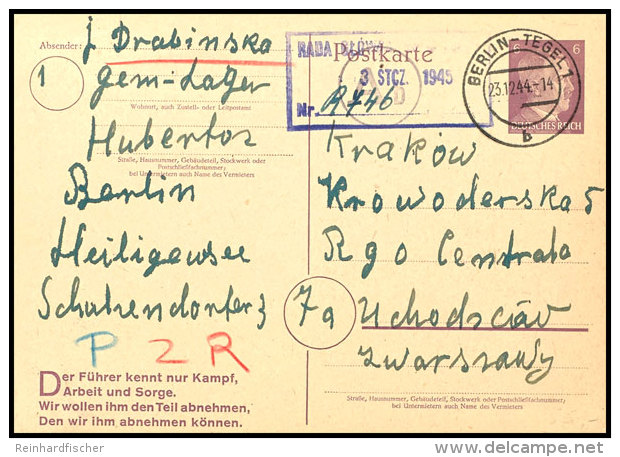 Absender: J. Drabinska
1 gem-Lager
Wohnort, auch Zustell- oder Leitpostamt
Hubertos
Straße, Hausnummer, Gebäudeteil, Stockwerk oder
Postschließfachnummer;
bei Untermietern auch Name des Vermieters
Berlin
Heiligensee
P 2 R
Der Führer kennt nur Kampf,
Arbeit und Sorge.
Wir wollen ihm den Teil abnehmen,
Den wir ihm abnehmen können.
Postkarte
RADA
3 STCZ. 1945
Nr. A746
BERLIN-TEGEL 1
23.12.44.-14
b
6 6
DEUTSCHES REICH
Kraków
Krowoderska 5
Rgo Centrala
7a Uchodzców
z warszawy
Straße, Hausnummer, Gebäudeteil, Stockwerk oder Postschließfachnummer;
bei Untermietern auch Name des Vermieters
Reinhardfischer
delcampe.net